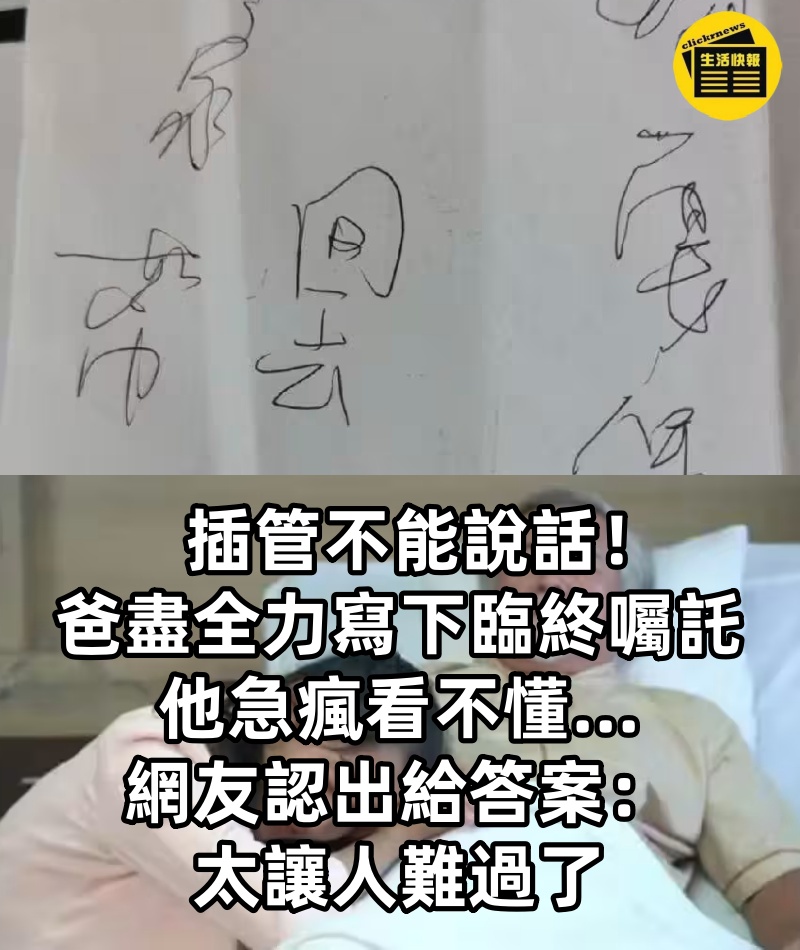 clickrnews
生活快報
回去
插管不能說話！
爸盡全力寫下臨終囑託
他急瘋看不懂...
網友認出給答案：
太讓人難過了